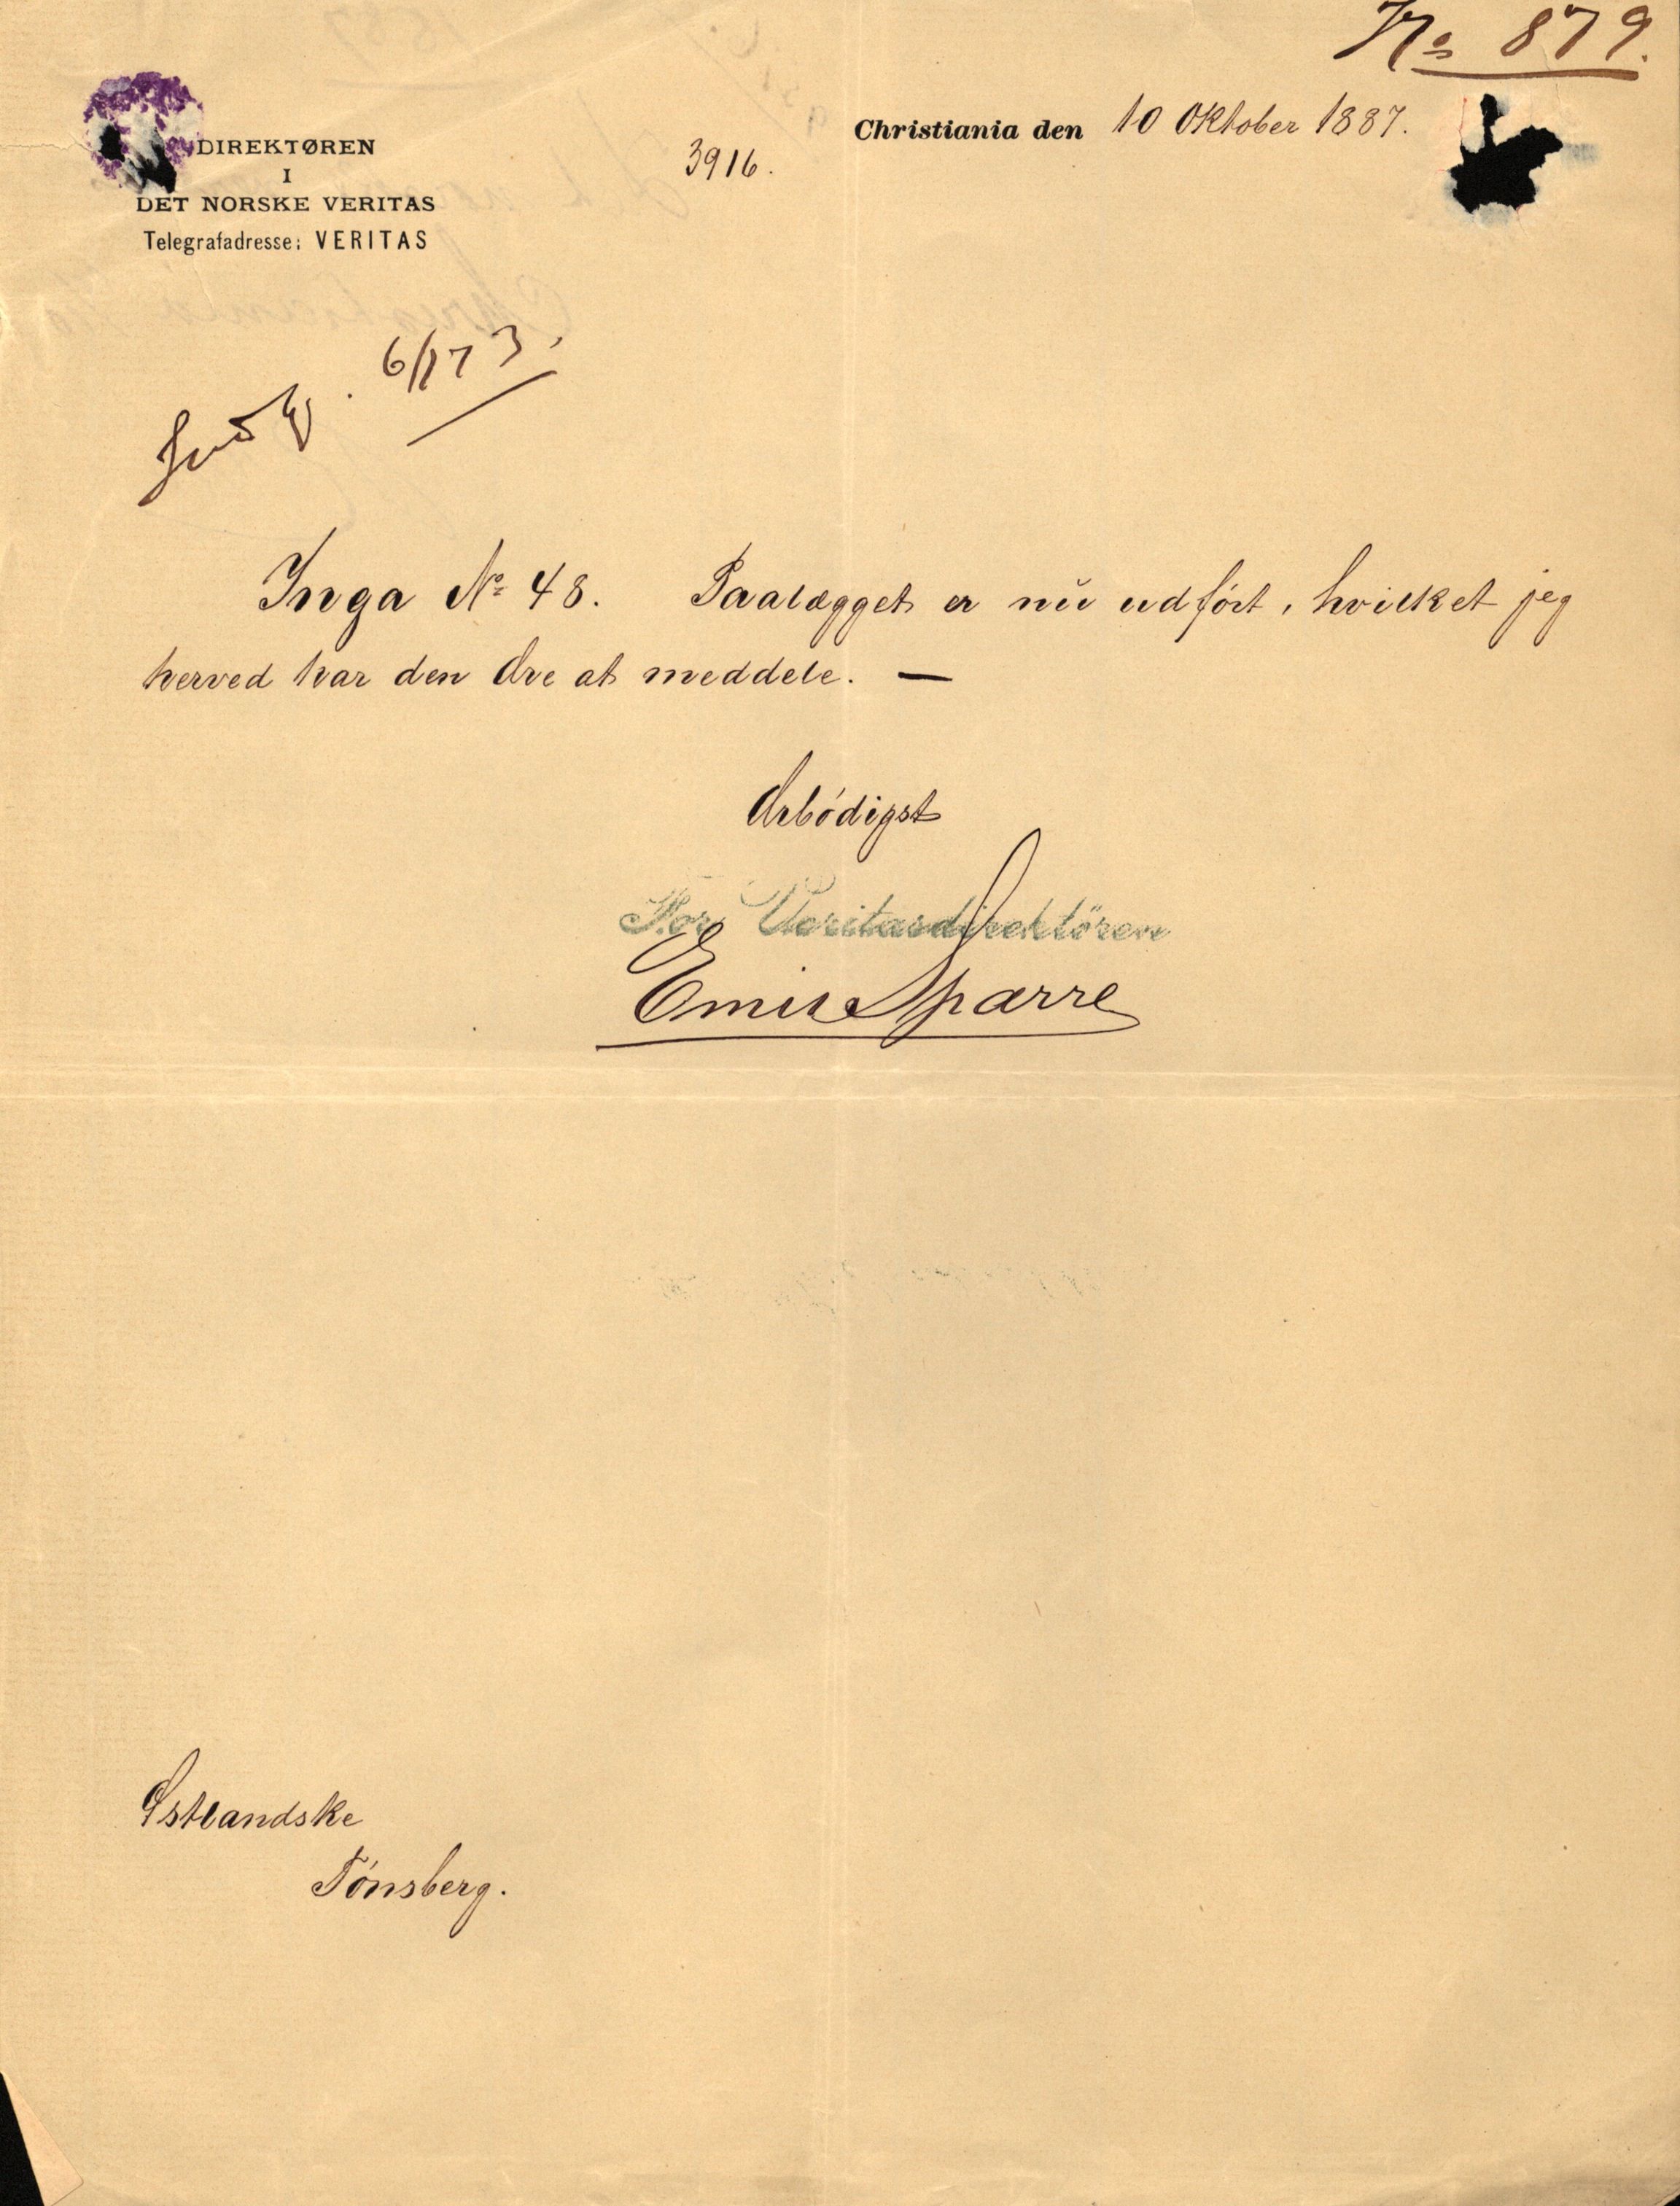 No 879.
DIREKTØREN
I
DET NORSKE VERITAS
Telegrafadresse: VERITAS
3916.
Christiania den 10 Oktober 1887.
6/173.
Inga No 48. Paalægget er nu udført, hvilket jeg
herved har den Ære at meddele. —
Ærbödigst
For Veritasdirektören
Emil Sparre
Østlandske
Tönsberg.